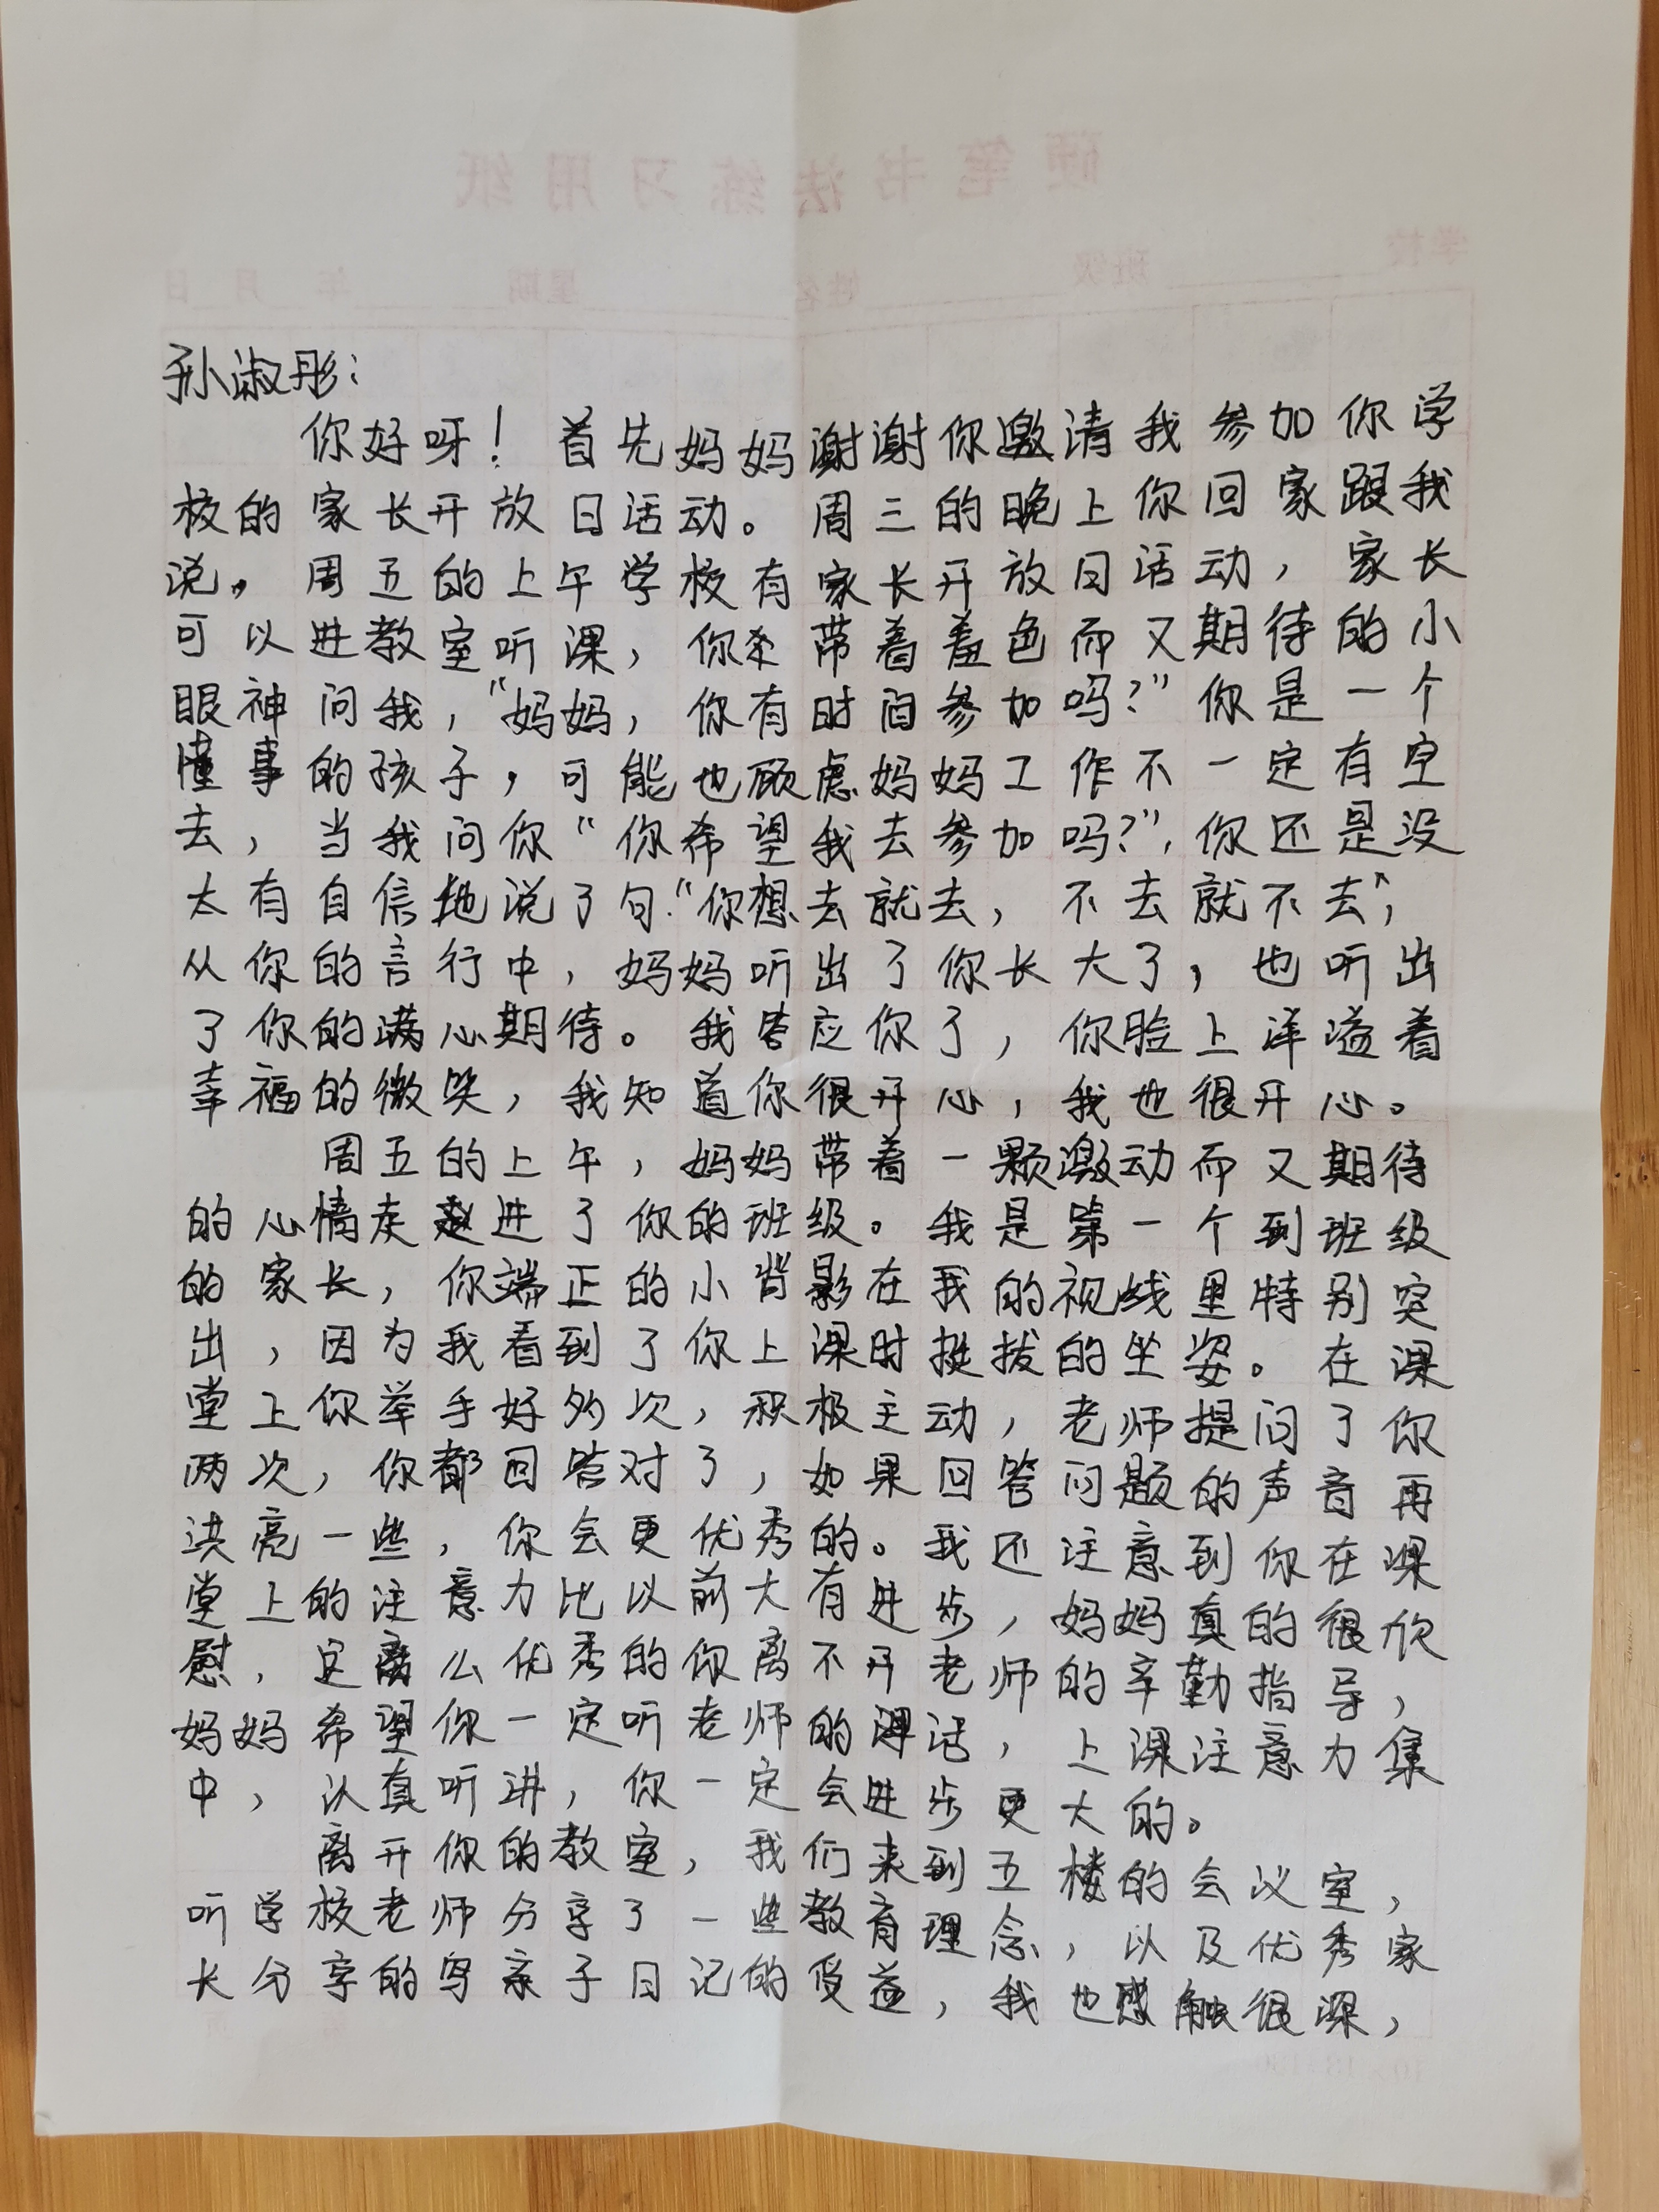 硬笔书法练习用纸
学校 班级 姓名 星期 年 月 日
孙淑彤：
你好呀！首先妈妈谢谢你邀请我参加你学
校的家长开放日活动。周三的晚上你回家跟我
说，周五的上午学校有家长开放日活动，家长
可以进教室听课，你带着羞色而又期待的小
眼神问我，“妈妈，你有时间参加吗？”你是一个
懂事的孩子，可能也顾虑妈妈工作不一定有空
去，当我问你“你希望我去参加吗？”，你还是没
太有自信地说了句“你想去就去，不去就不去”，
从你的言行中，妈妈听出了你长大了，也听出
了你的满心期待。我答应你了，你脸上洋溢着
幸福的微笑，我知道你很开心，我也很开心。
周五的上午，妈妈带着一颗激动而又期待
的心情走进了你的班级。我是第一个到班级
的家长，你端正的小背影在我的视线里特别突
出，因为我看到了你上课时挺拔的坐姿。在课
堂上你举手好多次，积极主动，老师提问了你
两次，你都回答对了，如果回答问题的声音再
洪亮一些，你会更优秀的。我还注意到你在课
堂上的注意力比以前大有进步，妈妈真的很欣
慰，么优秀的你离不开老师的辛勤指导，
妈妈希望你一定听老师的话，上课注意力集
中，认真听讲，你一定会进步更大的。
离开你的教室，我们来到五楼的会议室，
听学校老师分享了一些教育理念，以及优秀家
长分享的写亲子日记的受益，我也感触很深，